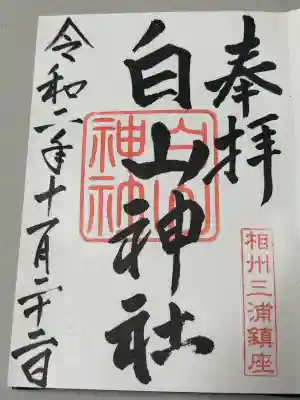 奉拝
相州三浦鎮座
白山神社
白山神社
令和二年十一月二十二日